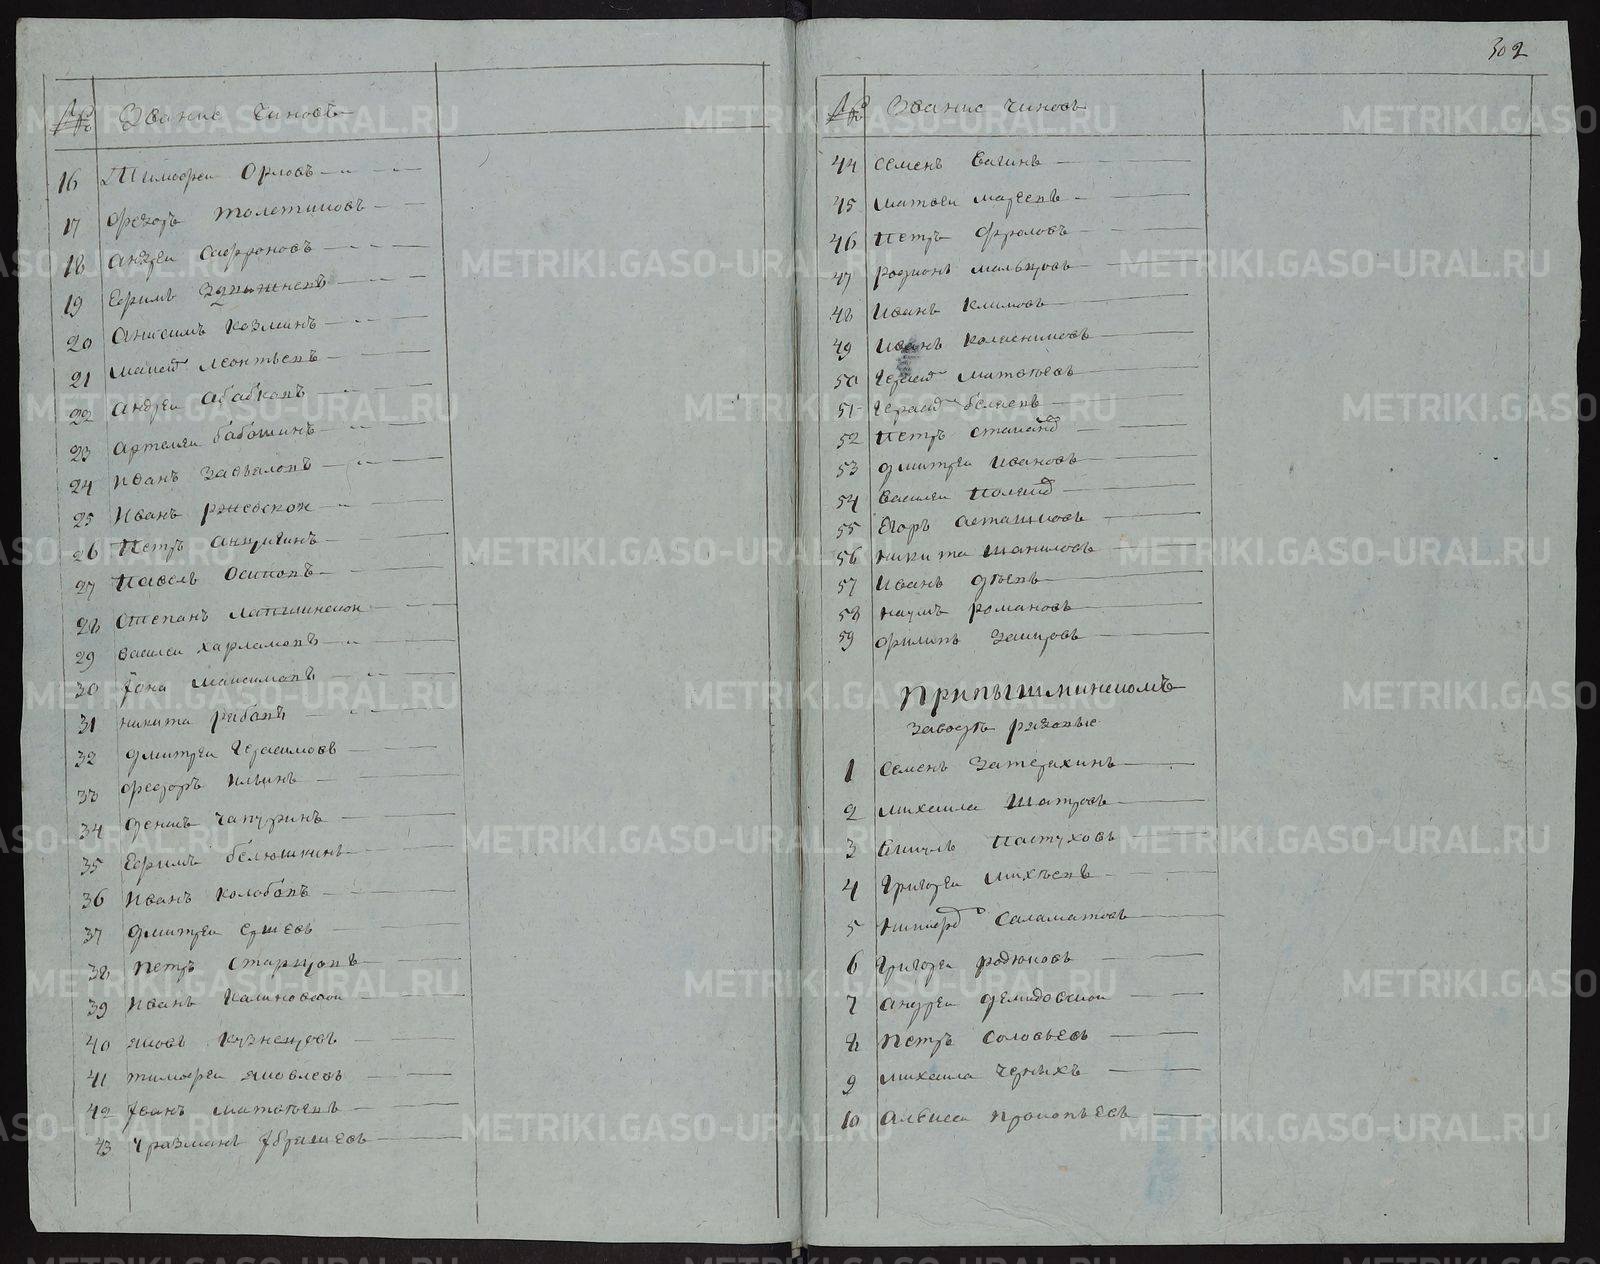 302
№ Звание чиновъ
16 Тимофеи Орловъ
17 Федоръ Толстиковъ
18 Андреи Сафроновъ
19 Ефимъ
20 Анисимъ Козминъ
21 Леонтьевъ
22 Андреи Абабковъ
23 Артемеи Бабошинъ
24 Иванъ Завьяловъ
25 Иванъ Ржевской
26 Петръ
27 Павелъ Осиповъ
28 Степанъ
29 Василеи Харламовъ
30 Iона Максимовъ
31 Никита Рябовъ
32 Дмитреи Герасимовъ
33 Федоръ Ильинъ
34 Денисъ Чапуринъ
35 Ефимъ Белюшкинъ
36 Иванъ Колобовъ
37 Дмитреи Ершевъ
38 Петръ Старцовъ
39 Иванъ Калиновской
40 Яковъ Кузнецовъ
41 Тимофеи Яковлевъ
42 Iванъ Матвѣевъ
43 Уразманъ Iбрашевъ
№ Звание чиновъ
44 Семенъ Вагинъ
45 Матвеи
46 Петръ Фроловъ
47 Родионъ Мальцовъ
48 Иванъ Климовъ
49 Иванъ Колясниковъ
50 Матвѣевъ
51 Белаевъ
52 Петръ
53 Дмитреи Ивановъ
54 Василеи
55 Егоръ Асташковъ
56 Никита Шаниловъ
57 Иванъ
58 Наумъ Романовъ
59 Филипъ
Припышминскомъ
Заводѣ рядовые
1 Семенъ Затеряхинъ
2 Михаила Шатровъ
3 Викулъ Пастуховъ
4 Григореи Михѣевъ
5 Саламатовъ
6 Григореи Родюковъ
7 Андреи Демидовской
8 Петръ Соловьевъ
9 Михаила Черныхъ
10 Алѣксеи Прокопьевъ
METRIKI.GASO-URAL.RU